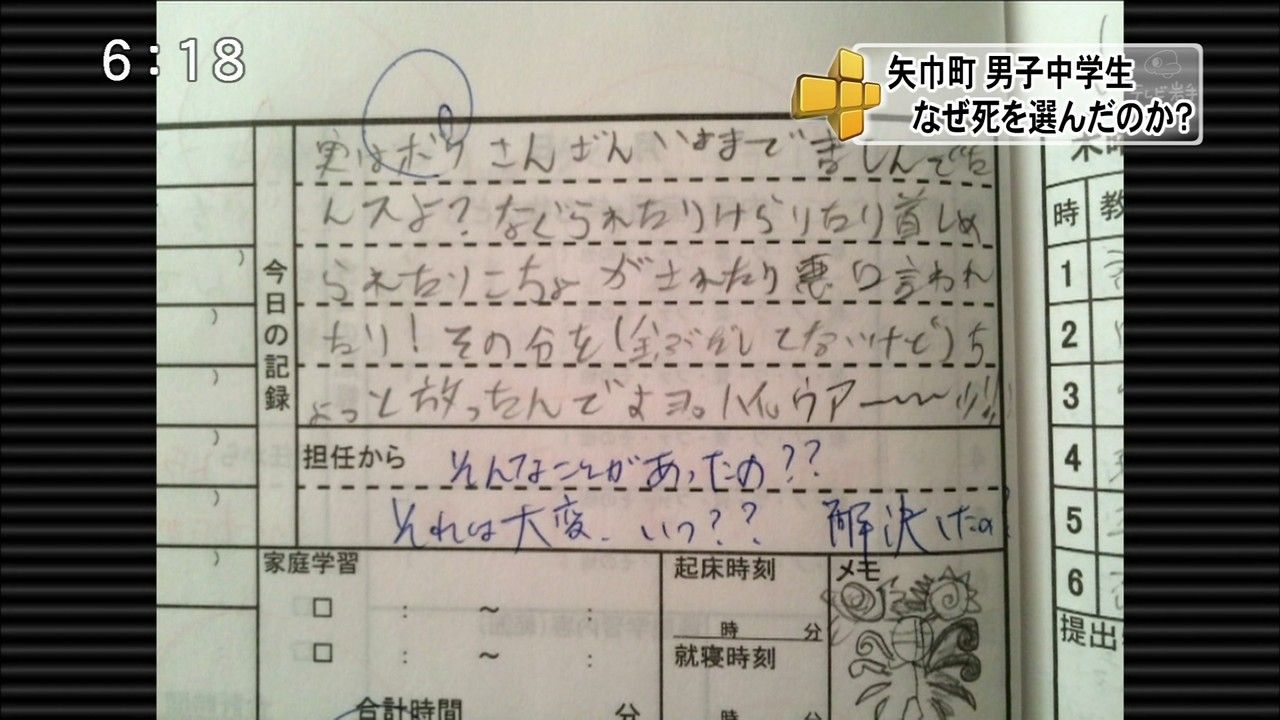 6:18
矢巾町 男子中学生
なぜ死を選んだのか?
テレビ岩手
今日の記録
実はボク さんざんいままで苦しんでた
んスよ?なぐられたりけられたり首しめ
られたりこちょがされたり悪口言われ
たり!その分を(全ぶだしてないけど)ち
ょっと放ったんですヨ。ハイ、ウアー〜〜!!
担任から
そんなことがあったの??
それは大変、いつ?? 解決したの
家庭学習
□ : 〜 :
□ : 〜 :
合計時間 分
起床時刻
時 分
就寝時刻
時 分
メモ
時 教
1
2
3
4
5
6
提出